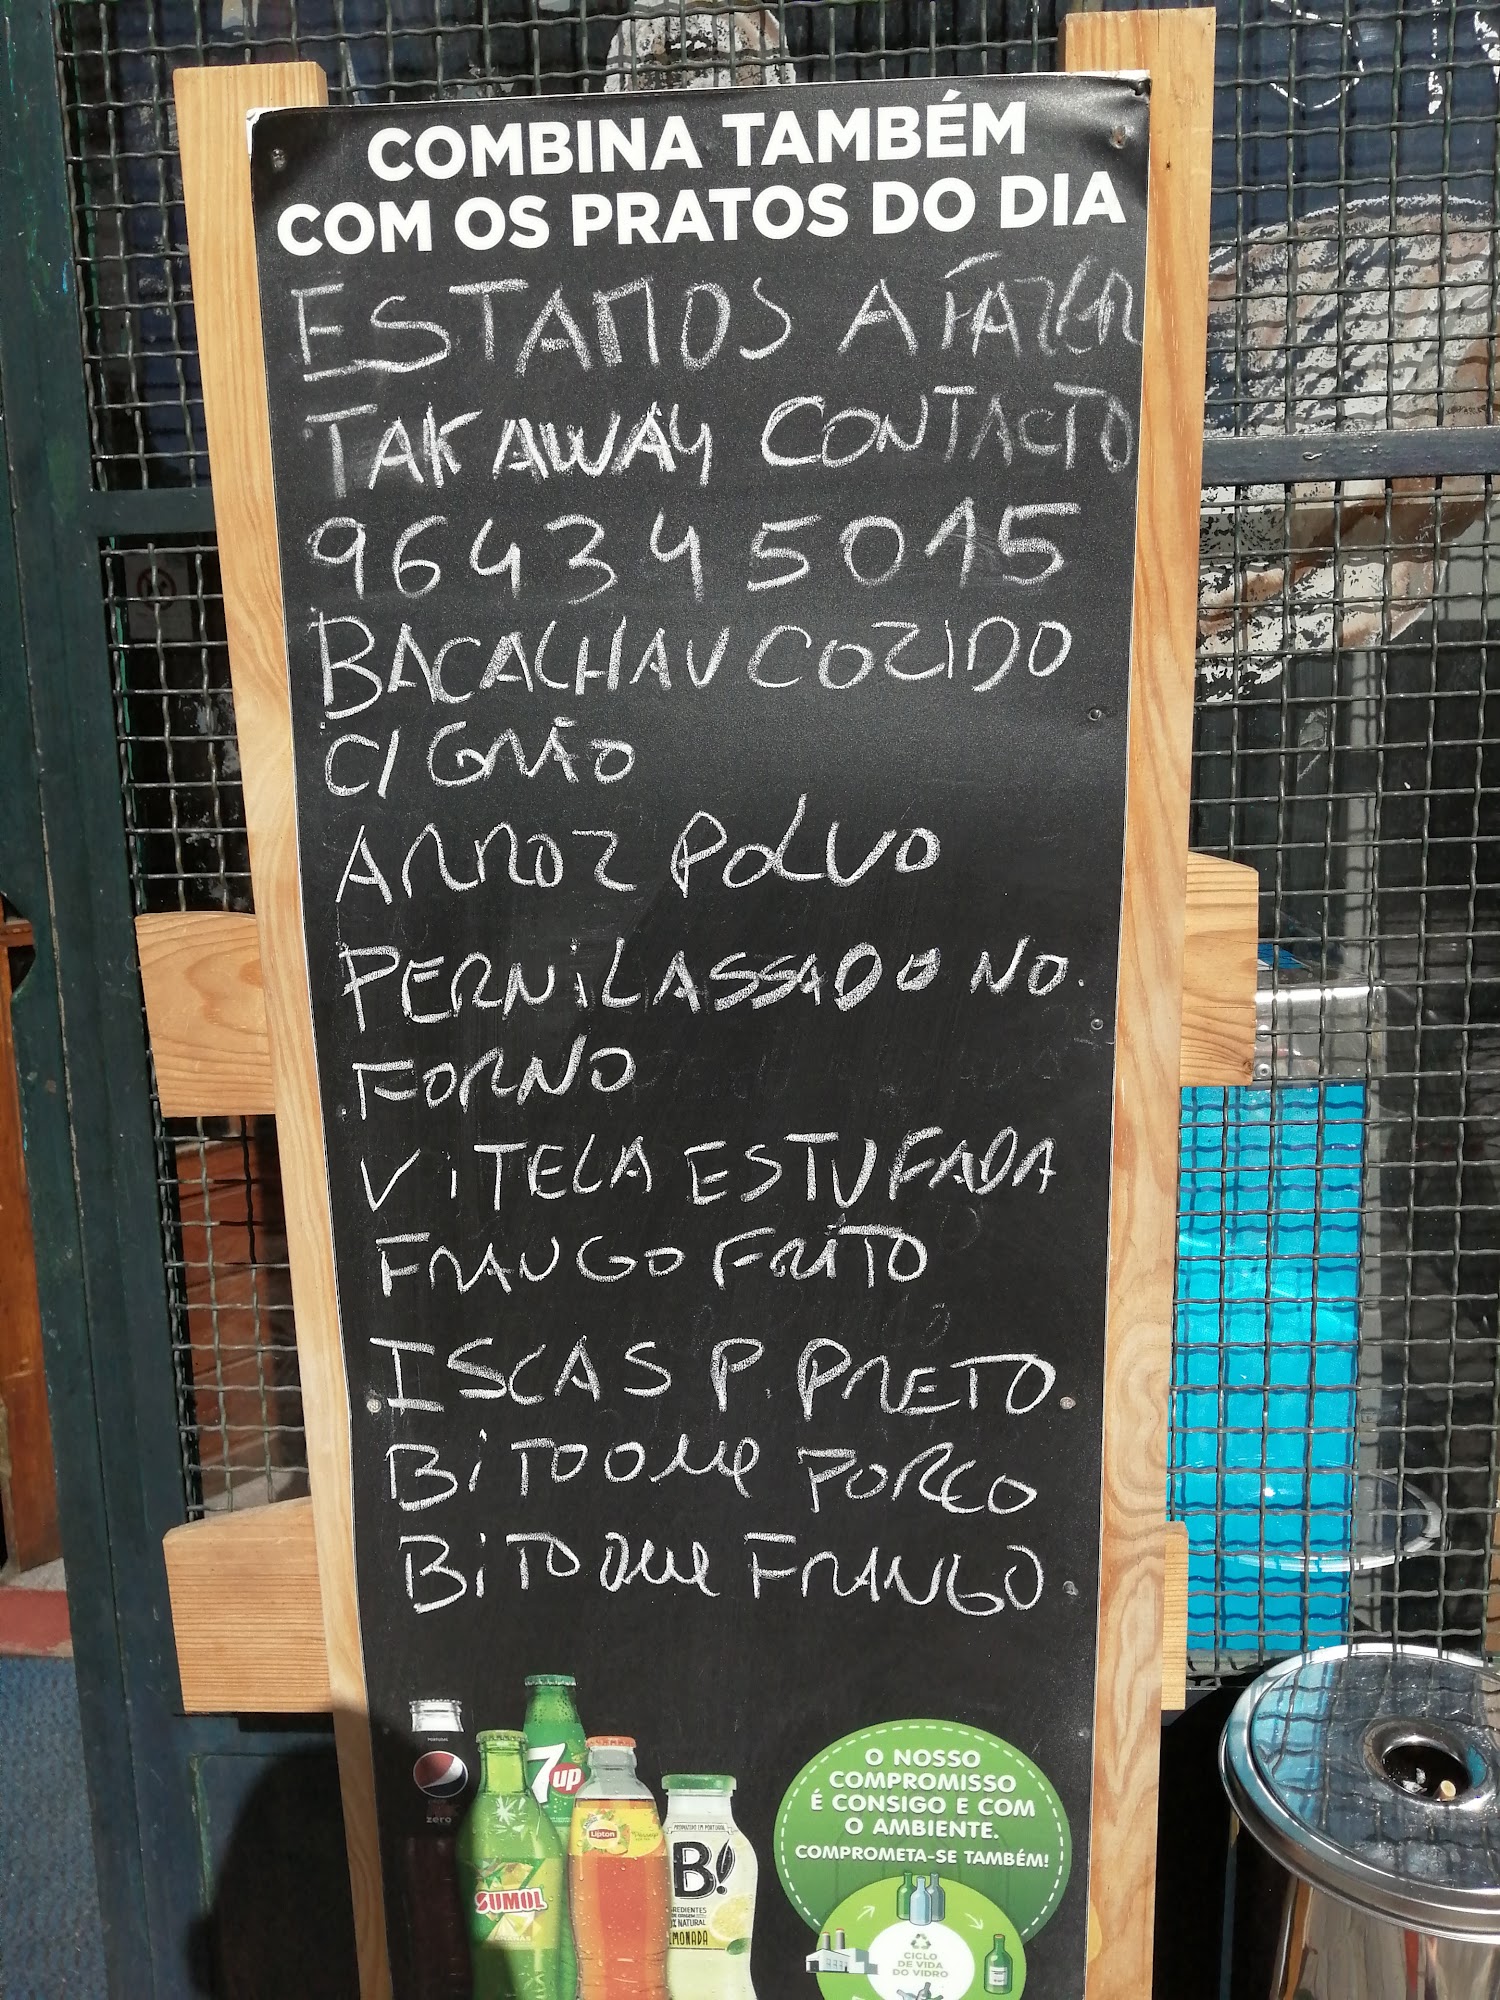 COMBINA TAMBÉM
COM OS PRATOS DO DIA
ESTAMOS A FAZER
TAK AWAY CONTACTO
964345015
BACALHAU COZIDO
C/ GRÃO
ARROZ POLVO
PERNIL ASSADO NO
FORNO
VITELA ESTUFADA
FRANGO FRITO
ISCAS P. PRETO
BiTOQUE PORCO
BiTOQUE FRANGO
7up
zero
Lipton
SUMOL
B!
100% NATURAL
LIMONADA
O NOSSO
COMPROMISSO
É CONSIGO E COM
O AMBIENTE.
COMPROMETA-SE TAMBÉM!
CICLO
DE VIDA
DO VIDRO